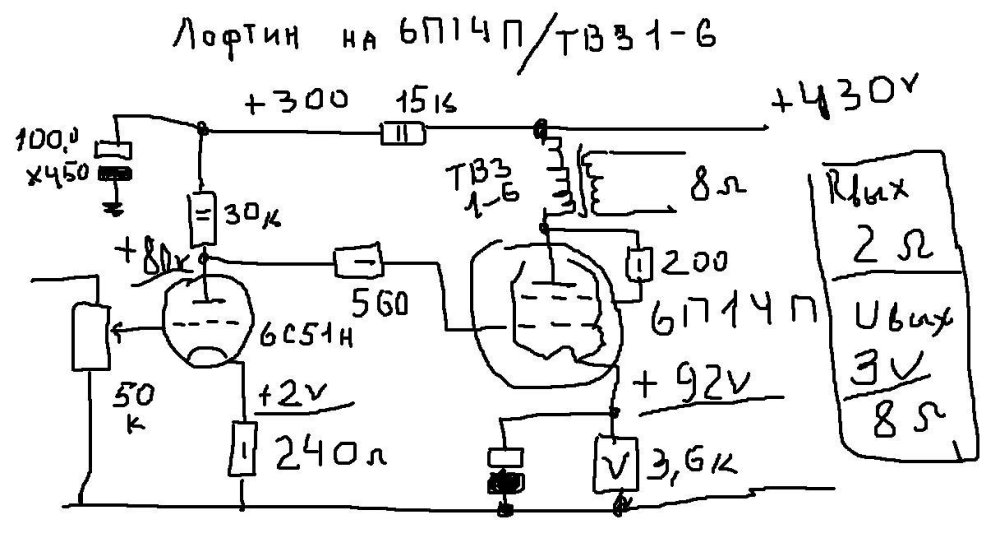 Лофтин на 6П14П/ТВЗ 1-6
+300
15к
+430v
100,0
х450
ТВЗ
1-6
8Ω
Rвых
2 Ω
Uвых
3v
8Ω
30к
+80v
560
200
6П14П
6С51н
50
к
+2v
240Ω
+92v
3,6к